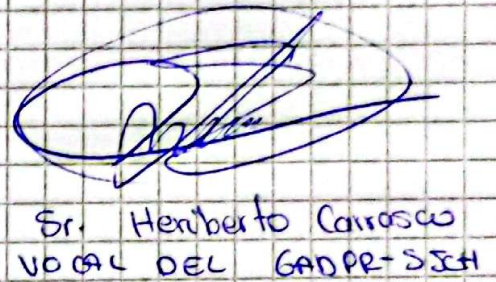 Sr. Heriberto Carrasco
VOCAL DEL GADPR-SJCH